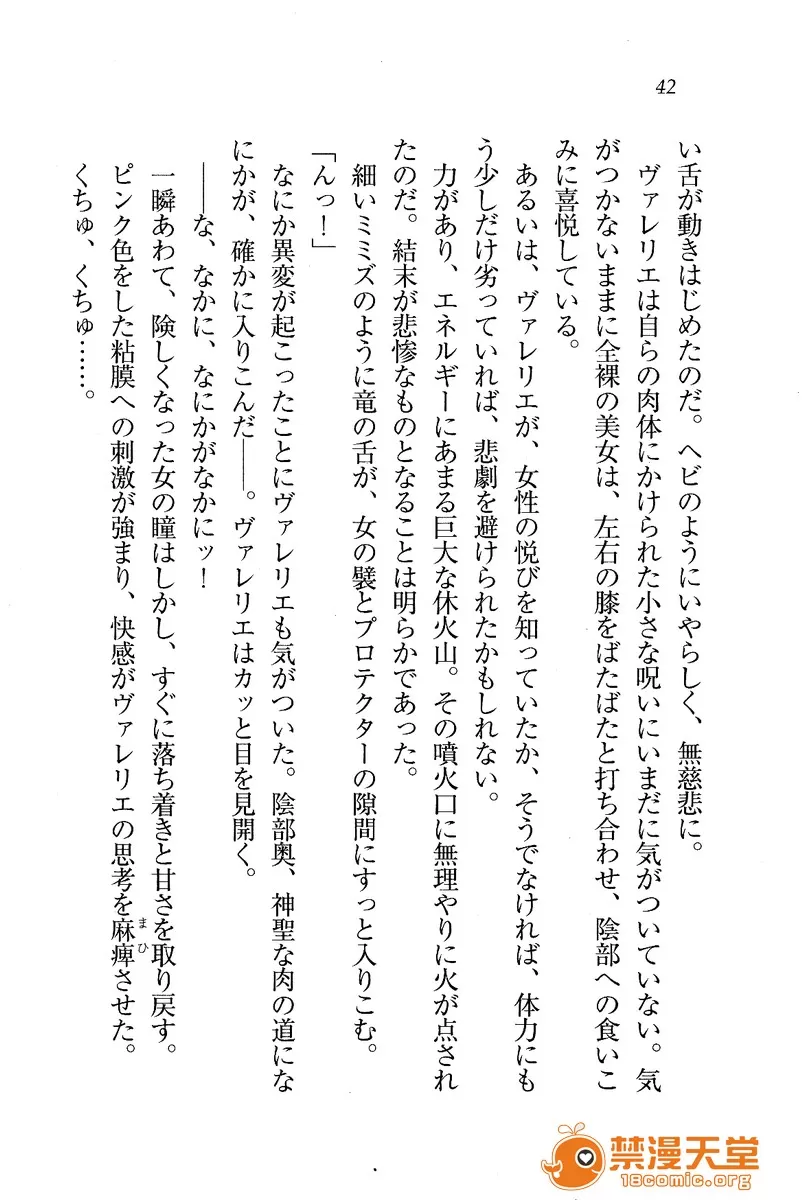 42
い舌が動きはじめたのだ。ヘビのようにいやらしく、無慈悲に。
ヴァレリエは自らの肉体にかけられた小さな呪いにいまだに気がついていない。気
がつかないままに全裸の美女は、左右の膝をばたばたと打ち合わせ、陰部への食いこ
みに喜悦している。
あるいは、ヴァレリエが、女性の悦びを知っていたか、そうでなければ、体力にも
う少しだけ劣っていれば、悲劇を避けられたかもしれない。
力があり、エネルギーにあまる巨大な休火山。その噴火口に無理やりに火が点され
たのだ。結末が悲惨なものとなることは明らかであった。
細いミミズのように竜の舌が、女の襞とプロテクターの隙間にすっと入りこむ。
「んっ！」
なにか異変が起こったことにヴァレリエも気がついた。陰部奥、神聖な肉の道にな
にかが、確かに入りこんだ――。ヴァレリエはカッと目を見開く。
――な、なかに、なにかがなかにッ！
一瞬あわて、険しくなった女の瞳はしかし、すぐに落ち着きと甘さを取り戻す。
ピンク色をした粘膜への刺激が強まり、快感がヴァレリエの思考を麻痺させた。
まひ
くちゅ、くちゅ……。
禁漫天堂
18comic.org